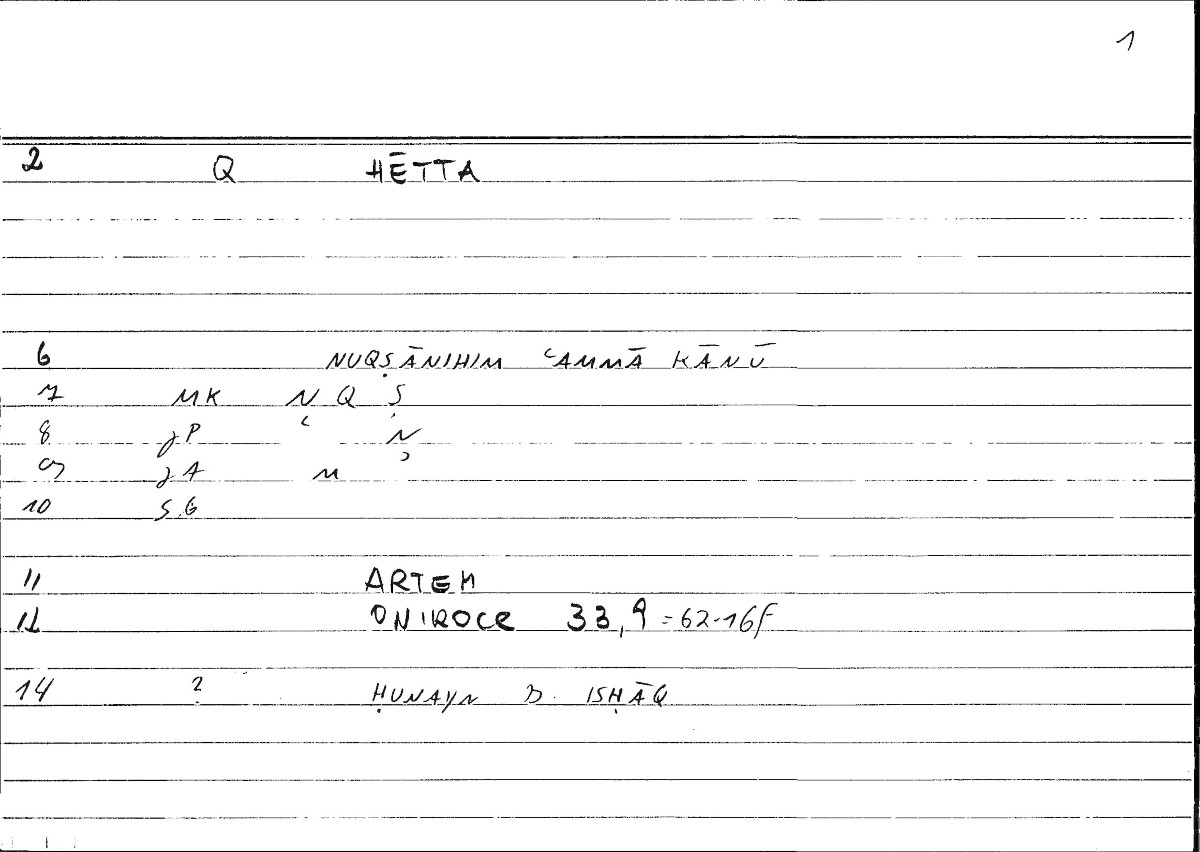 1
2 Q HĒTTA
6 NUQṢĀNIHIM ʿAMMĀ KĀNŪ
7 MK N Q Ṣ
8 jP ʿ N
9 jA M
10 SG
11 ARTEM
12 ONIROCE 33,9 = 62-16f
14 ? ḤUNAYN B. ISḤĀQ